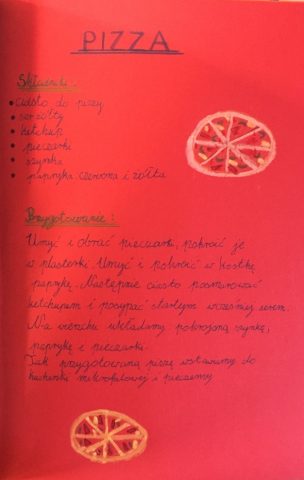 PIZZA
Składniki:
• ciasto do pizzy
• ser żółty
• ketchup
• pieczarki
• szynka
• papryka czerwona i żółta
Przygotowanie:
Umyć i obrać pieczarki, pokroić je
w plasterki. Umyć i pokroić w kostkę
paprykę. Następnie ciasto posmarować
ketchupem i posypać startym wcześniej serem.
Na wierzchu układamy pokrojoną szynkę,
paprykę i pieczarki.
Tak przygotowaną pizzę wstawiamy do
kuchenki mikrofalowej i pieczemy